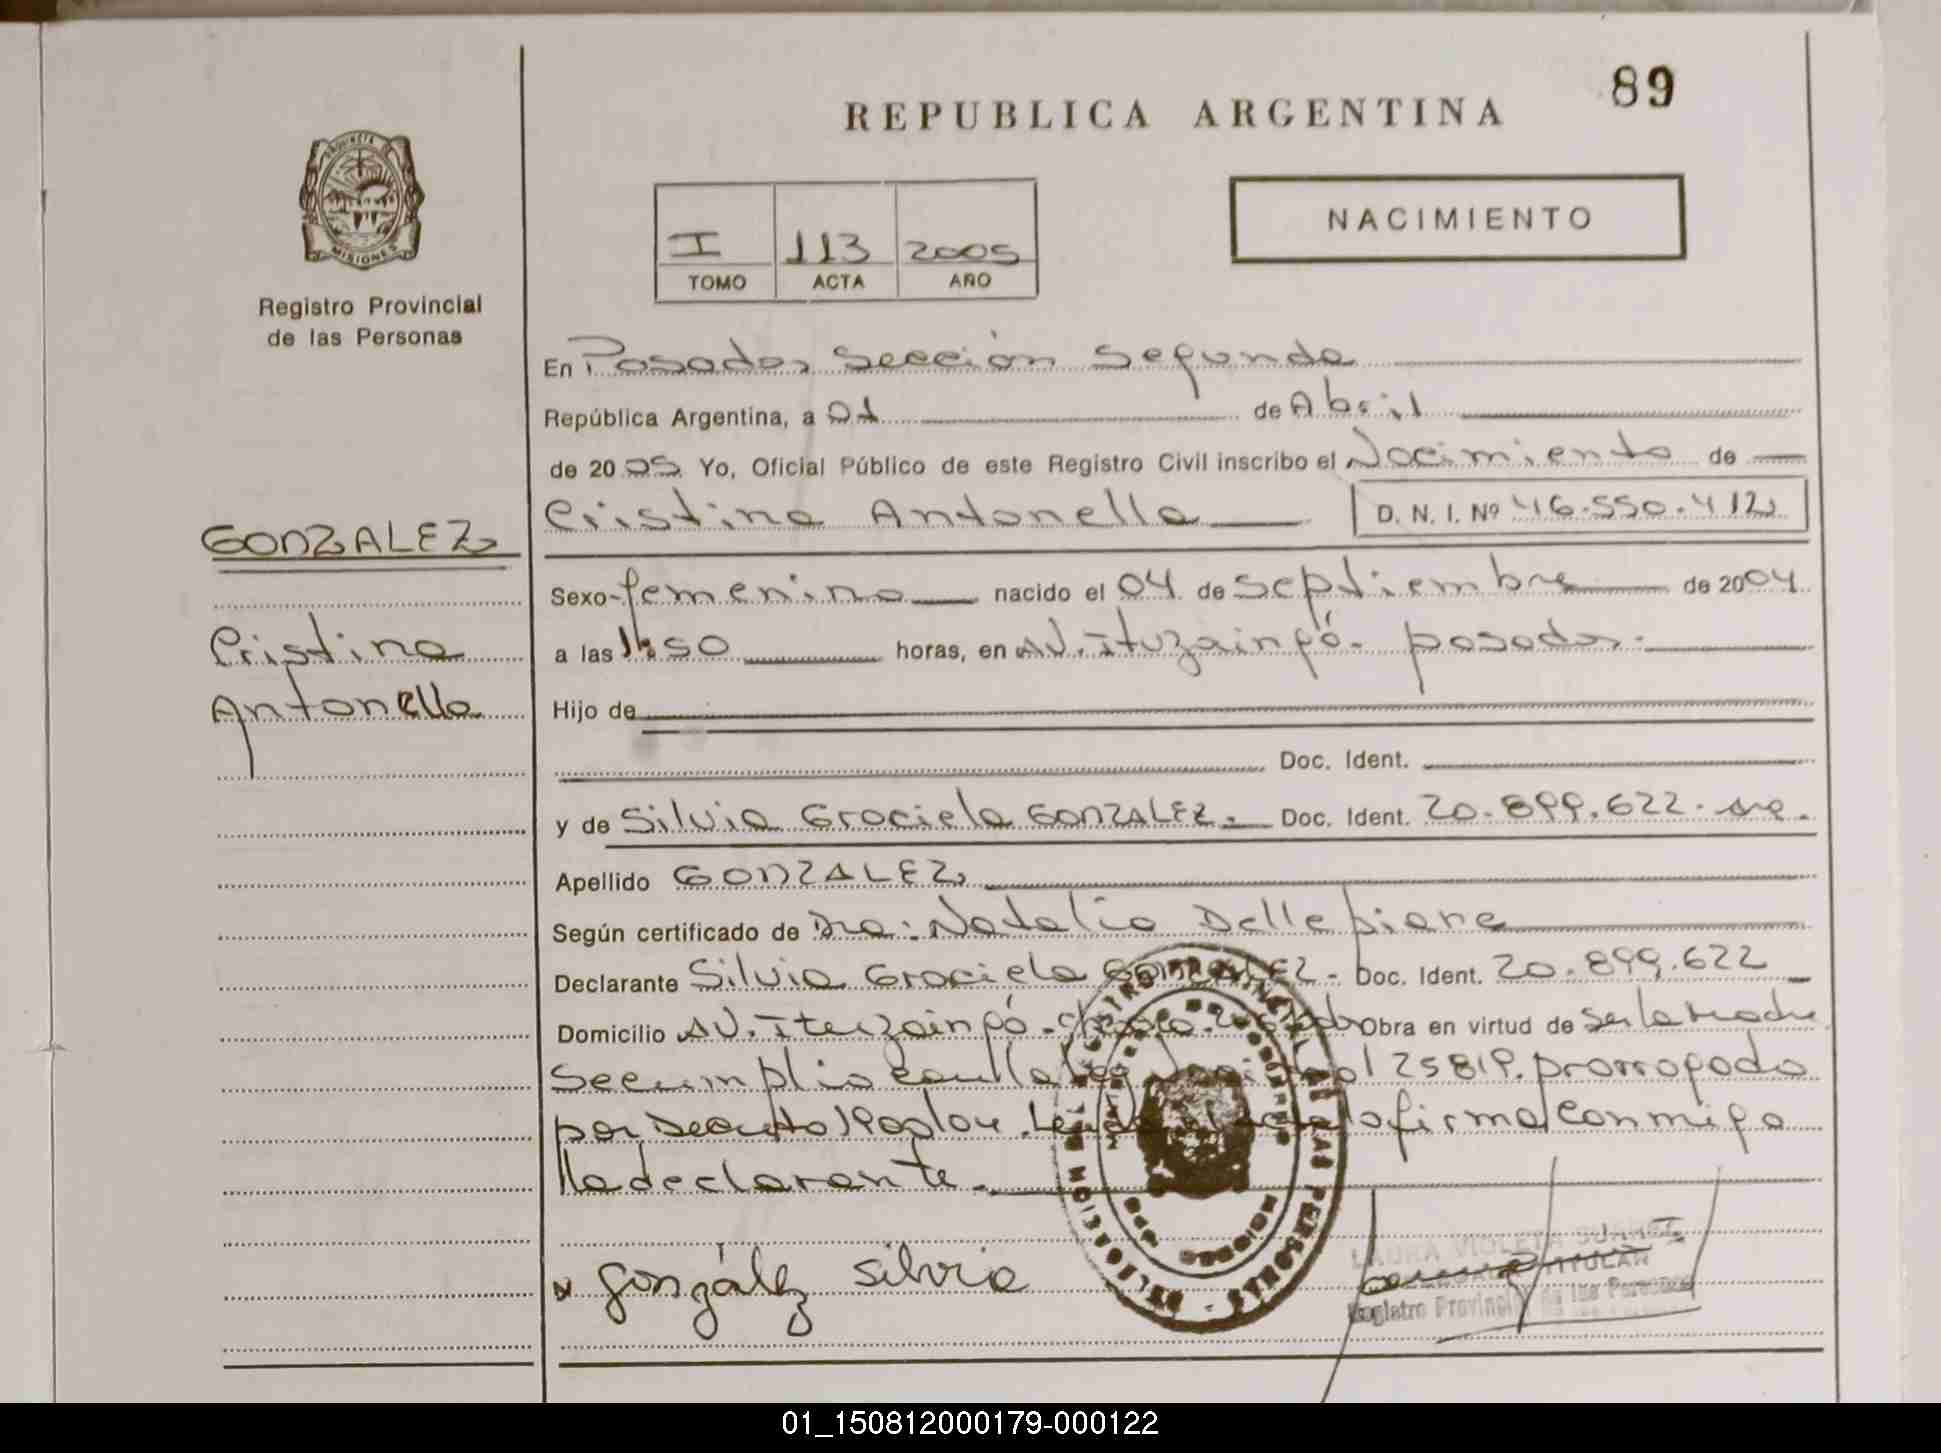 89
REPUBLICA ARGENTINA
PROVINCIA DE
MISIONES
NACIMIENTO
I 113 2005
TOMO ACTA AÑO
Registro Provincial
de las Personas
En Posadas, Sección Segunda
República Argentina, a 01 de Abril
de 2005 Yo, Oficial Público de este Registro Civil inscribo el Nacimiento de
Cristina Antonella D. N. I. Nº 46.550.412
GONZALEZ
Cristina
Antonella
Sexo femenino nacido el 04 de septiembre de 2004
a las 1:50 horas, en AV. Ituzaingó. posadas.
Hijo de
Doc. Ident.
y de Silvia Graciela GONZALEZ. Doc. Ident. 20.899.622.
Apellido GONZALEZ
Según certificado de Dra. Natalia Dellepiane
Declarante Silvia Graciela GONZALEZ. Doc. Ident. 20.899.622
Domicilio AV. Ituzaingó. Obra en virtud de ser la madre
Se cumplio con la Ley 25819. prorrogada
por Decreto firma conmigo
la declarante.
gonzález silvia
LAURA VIOLETA SUAREZ
TITULAR
Registro Provincial de las Personas
01_150812000179-000122